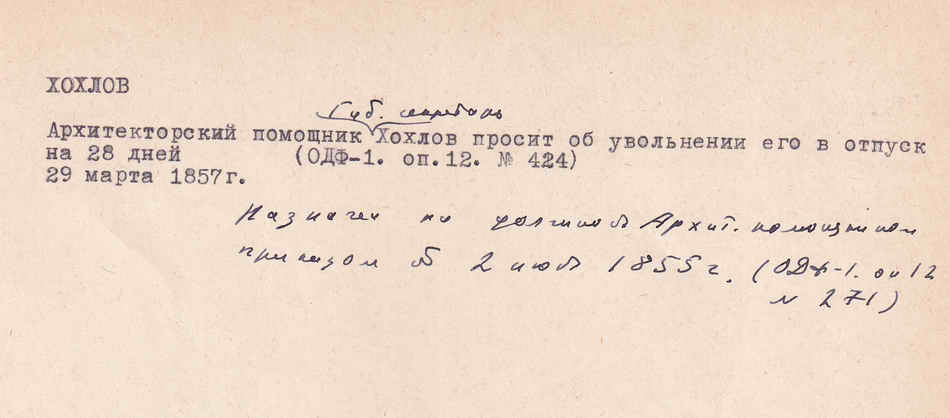 ХОХЛОВ
Губ. секретарь
Архитекторский помощник Хохлов просит об увольнении его в отпуск
на 28 дней (ОДФ-1. оп.12. № 424)
29 марта 1857г.
Назначен на должность Архит. помощником
приказом 2 1855 г. (ОДФ-1. оп 12
№ 271)